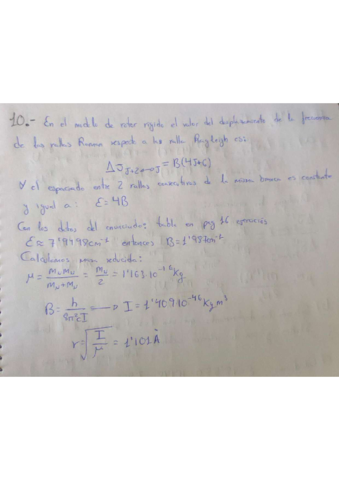 10.- En el modelo de rotor rígido el valor del desplazamiento de la frecuencia
de las rallas Raman respecto a la ralla Rayleigh es:
Δν J+2←J = B(4J+6)
y el espaciado entre 2 rallas consecutivas de la misma banda es constante
y igual a: ε=4B
Con los datos del enunciado: tabla en pag 16 ejercicios
ε≈7'9498cm⁻¹ entonces B=1'987cm⁻¹
Calculamos masa reducida:
μ = = /2 = 1'163·10⁻²⁶Kg
B= h/8π²cI → I=1'409·10⁻⁴⁶Kg.m²
r=√(I/μ) = 1'101Å